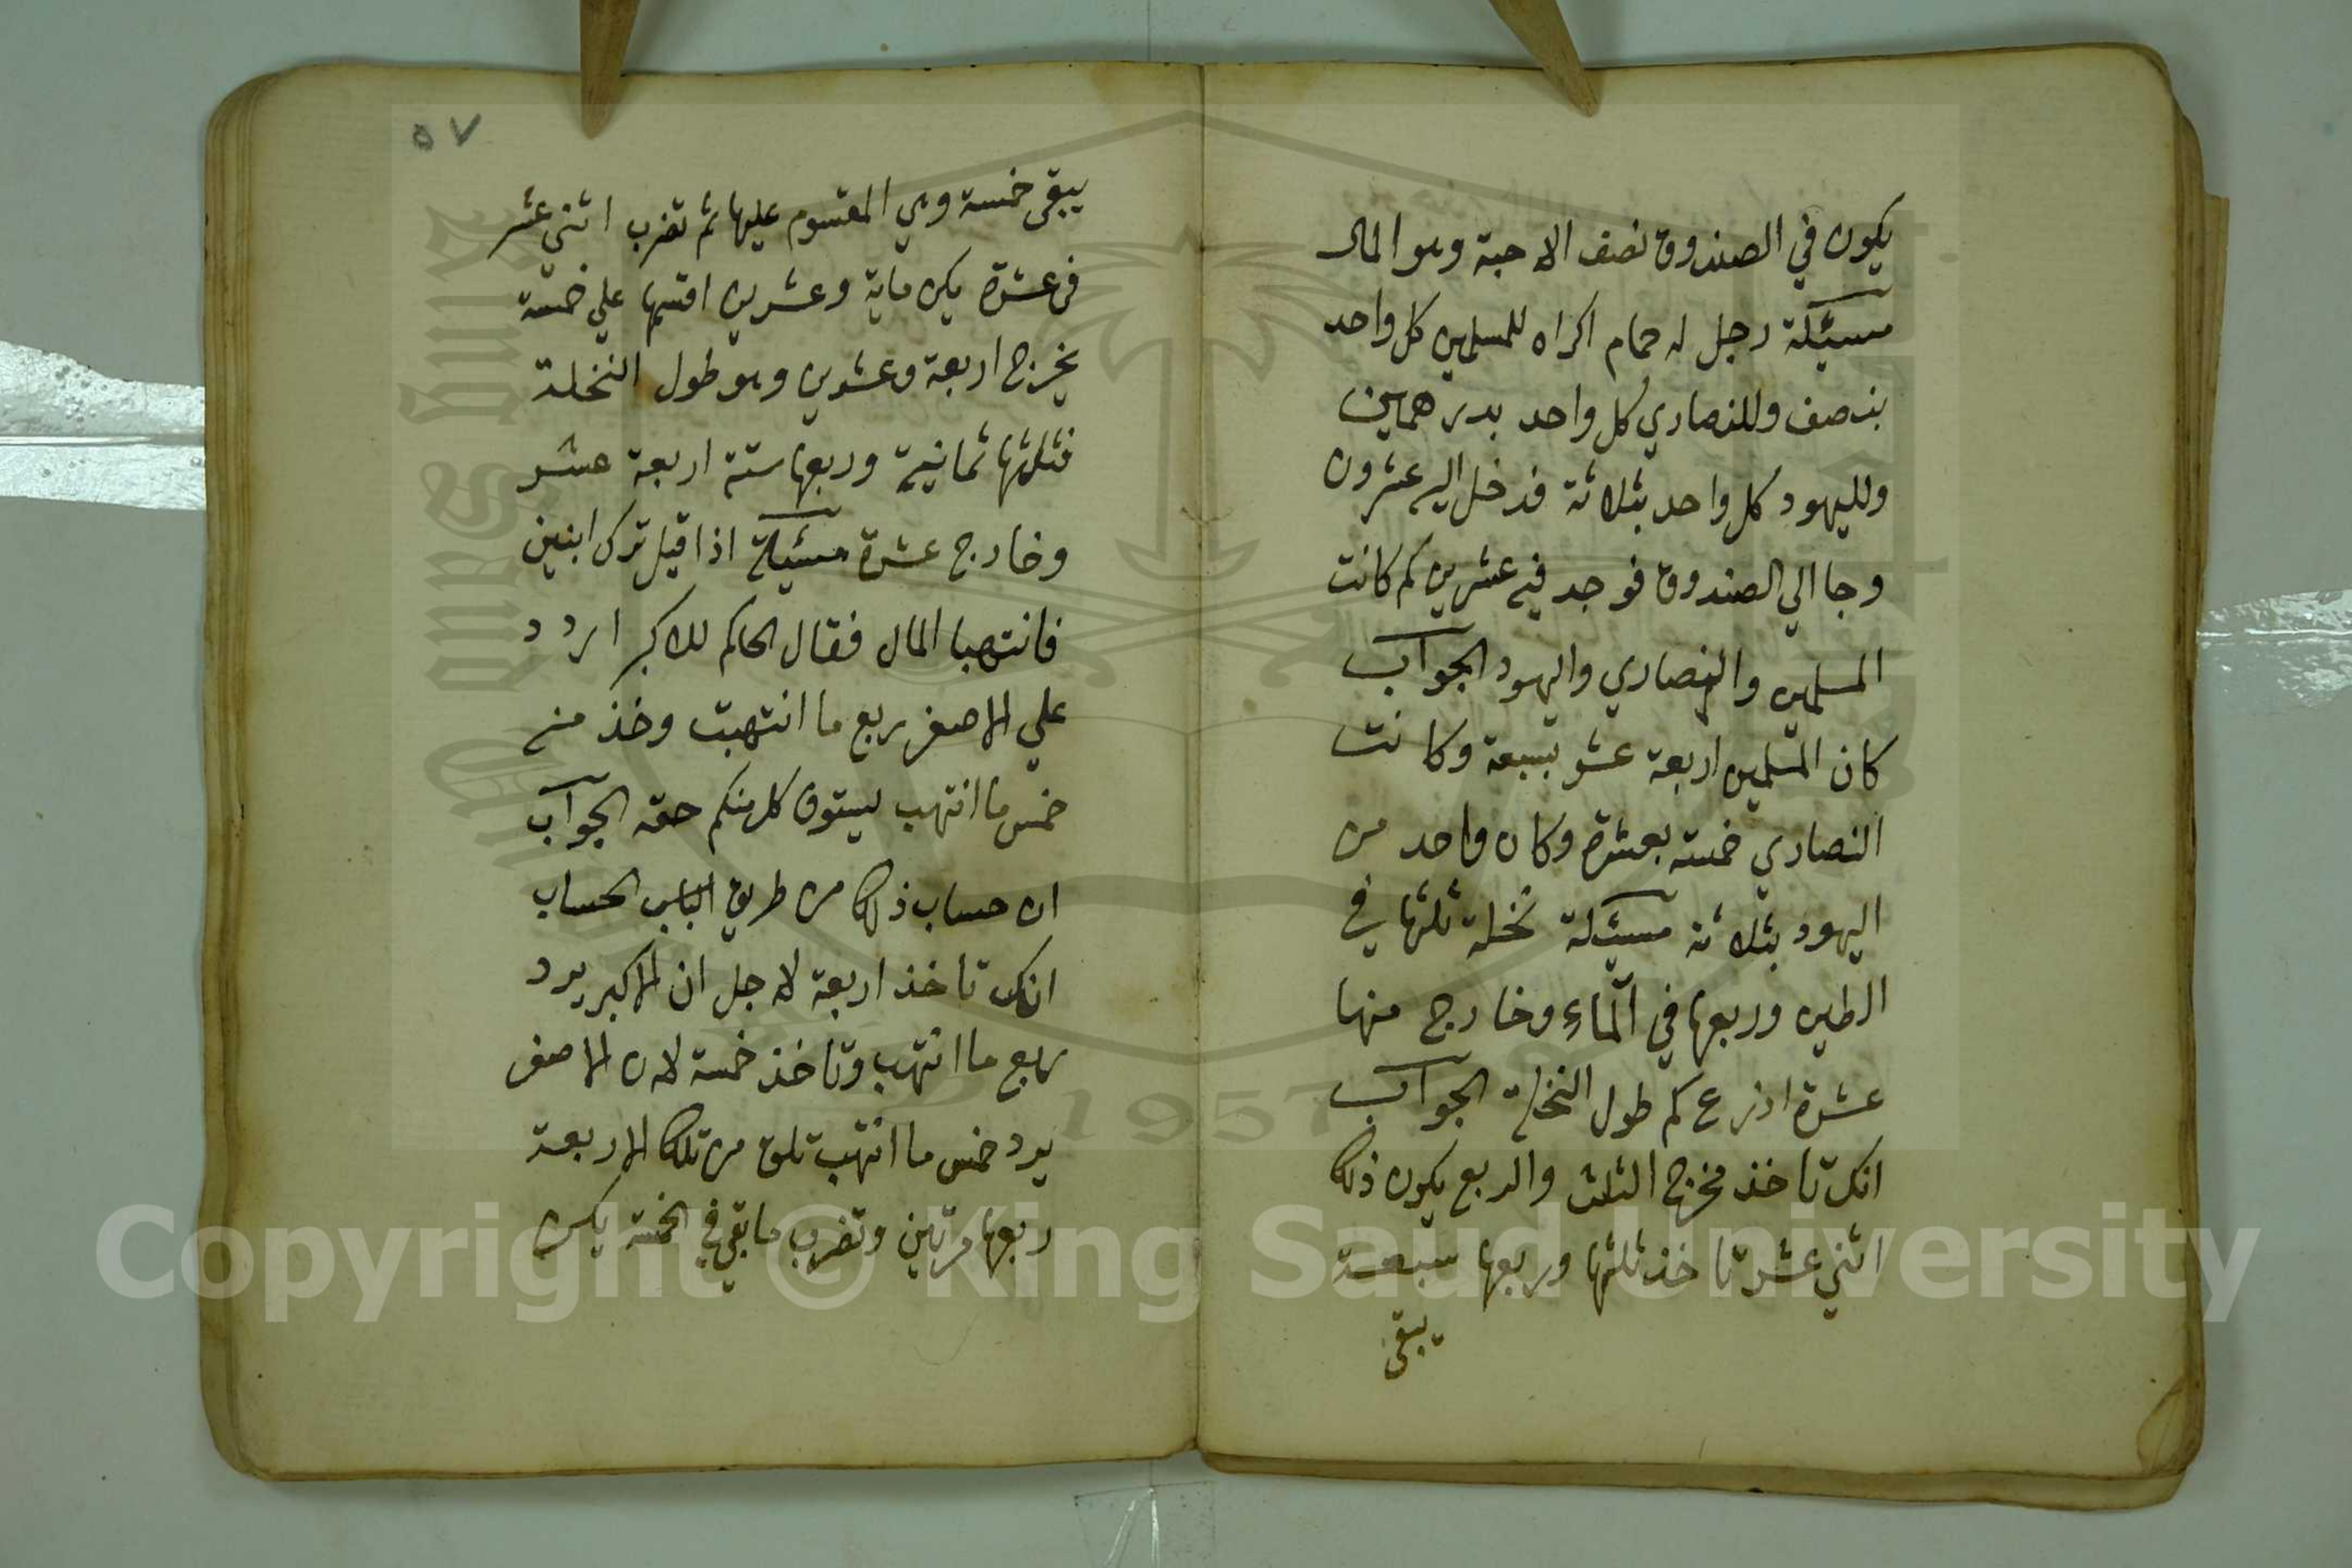 يكون في الصندوق نصف الاحبة وهو المال
مسيئلة رجل له حمام اكراه للمسلمين كل واحد
بنصف وللنصاري كل واحد بدرهمين
ولليهود كل واحد بثلاثة فدخل اليه عشرون
وجا الي الصندوق فوجد فيه عشرين كم كانت
المسلمين والنصاري واليهود الجواب
كان المسلمين اربعة عشر بسبعة وكانت
النصاري خمسة بعشرة وكان واحد من
اليهود بثلاثة مسيئلة نخلة ثلثها في
الطين وربعها في الماء وخارج منها
عشرة اذرع كم طول النخلة الجواب
انك تاخذ مخرج الثلث والربع يكون ذلك
اثني عشر تاخذ ثلثها وربعها سبعة
يبقى
٥٧
يبقى خمسة وهي المقسوم عليها ثم تضرب اثني عشر
في عشرة يكن ماية وعشرين اقسمها علي خمسة
يخرج اربعة وعشرين وهو طول النخلة
فثلثها ثمانية وربعها ستة اربعة عشر
وخارج عشرة مسيئلة اذا قيل ترك ابنين
فانتهبا المال فقال الحاكم للاكبر اردد
علي الاصغر ربع ما انتهبت وخذ منه
خمس ما انتهب ليستوف كل منكم حقه الجواب
ان حساب ذلك من طريق الباب الحساب
انك تاخذ اربعة لاجل ان الاكبر يرد
ربع ما انتهب وتاخذ خمسة لان الاصغر
يرد خمس ما انتهب تلق من تلك الاربعة
ربعها مرتين وتضرب ما بقي في الخمسة يكن
Copyright © King Saud University
1957